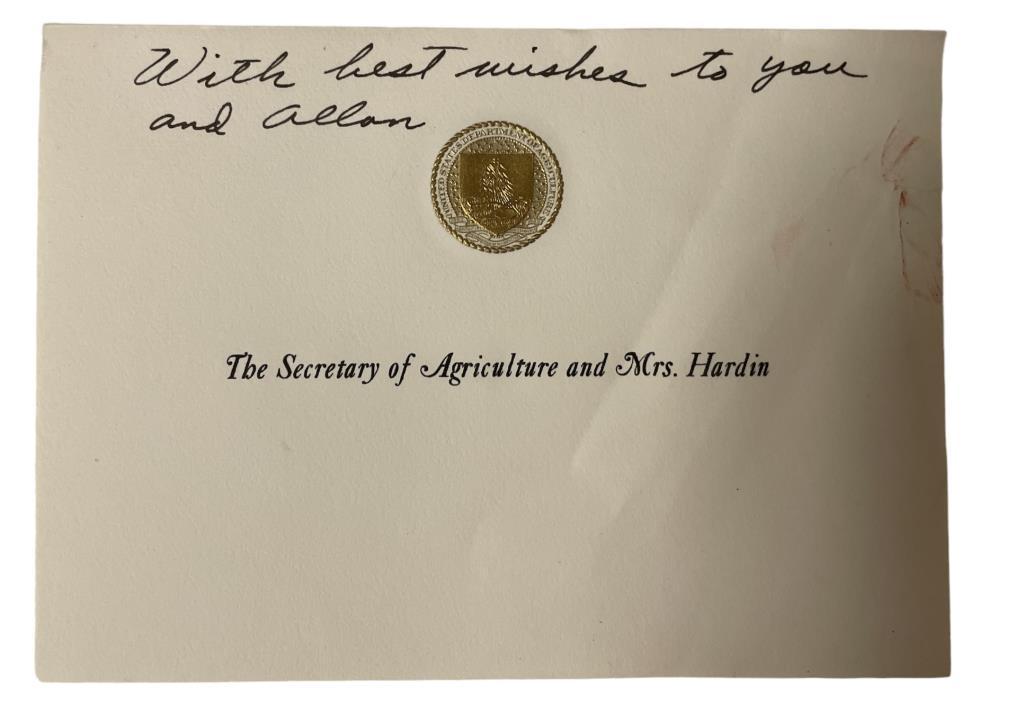 With best wishes to you
and Allan
UNITED STATES DEPARTMENT OF AGRICULTURE
The Secretary of Agriculture and Mrs. Hardin